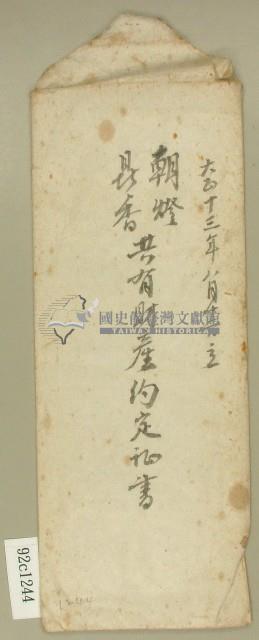 大正十三年八月 立
朝燈
昌香
共有財產約定証書
國史館臺灣文獻館
TAIWAN HISTORICA
92c1244